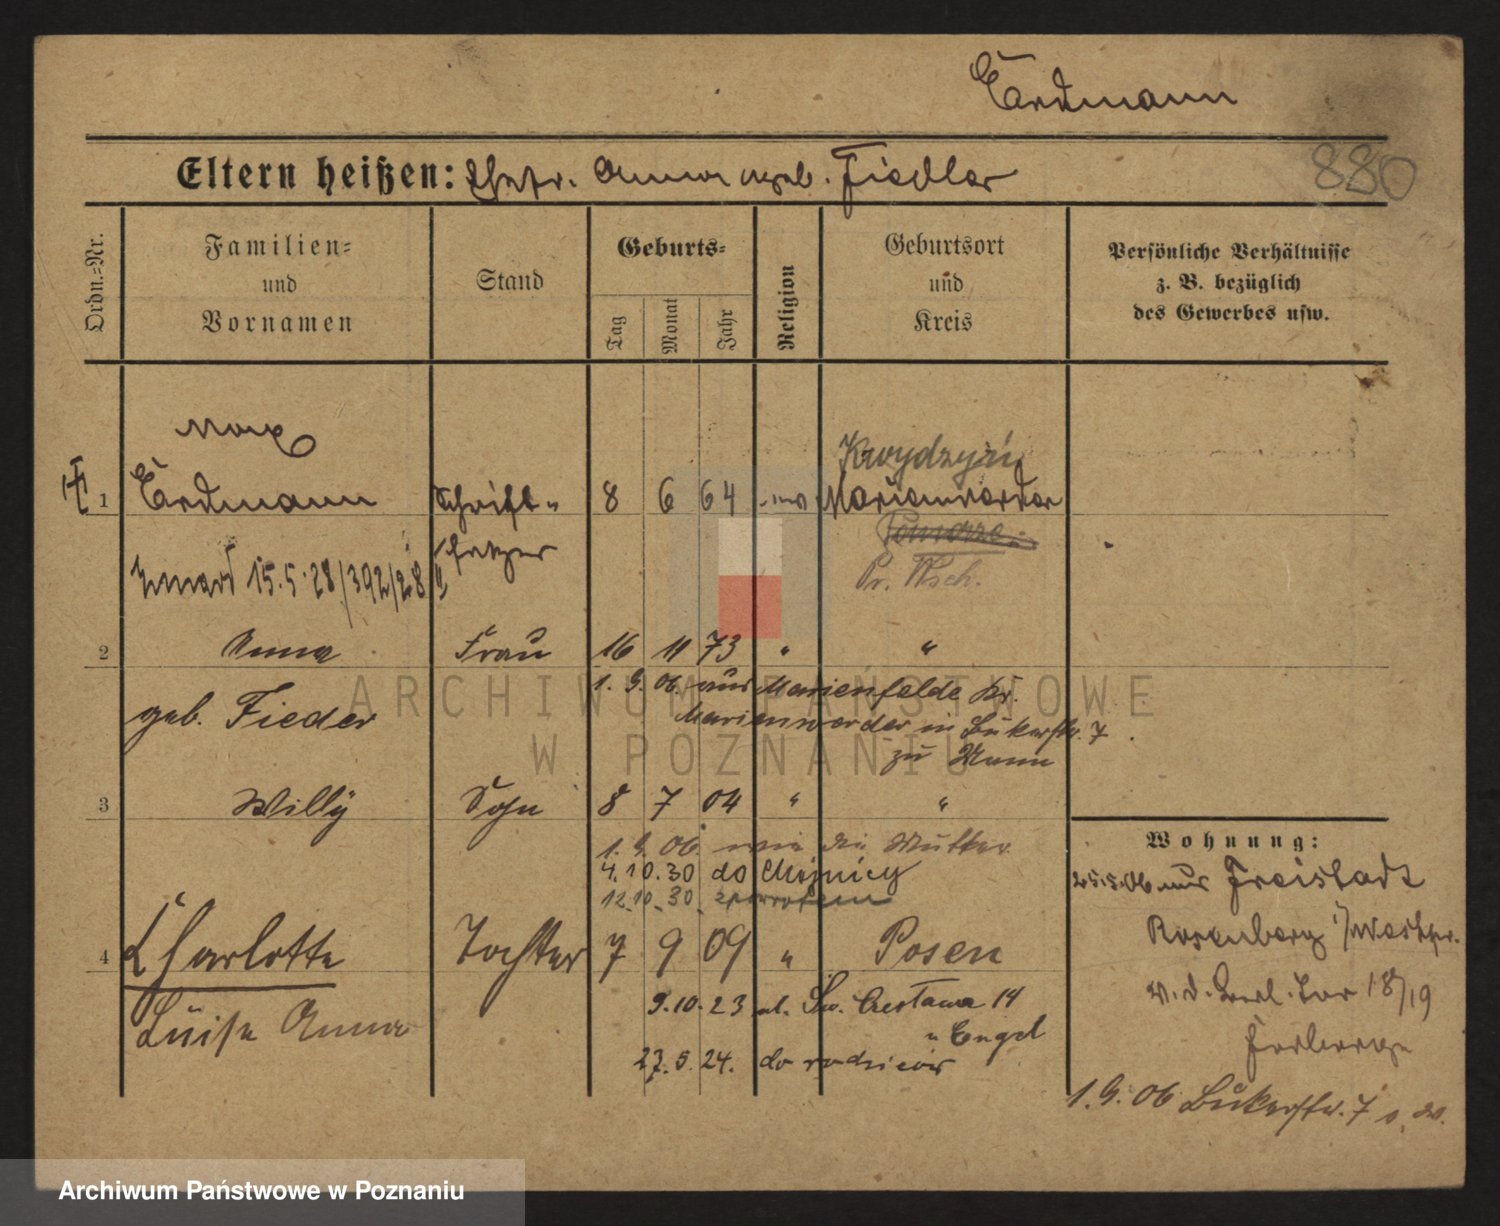 Erdmann
Eltern heißen: Ehefr. Anna geb. Fiedler
880
Ordn.=Nr.
Familien=
und
Vornamen
Stand
Geburts=
Tag
Monat
Jahr
Religion
Geburtsort
und
Kreis
Persönliche Verhältnisse
z. B. bezüglich
des Gewerbes usw.
Max
Kwydzyń
1 Erdmann Schrift- 8 6 64 Marienwerder
Pomorze
setzer
Pr. Wsch.
15.5.28/392/28
2 Anna Frau 16 11 73 " "
1. 9. 06. aus Marienfelde Kr.
geb. Fieder
Marienwerder in Bukerstr. 7
zu Mann
3 Willÿ Sohn 8 7 04 " "
1. 9. 06. wie die Mutter
4.10.30 do Chojnicy
12.10.30
4 Charlotte Tochter 7 9 09 " Posen
Luise Anna
9.10.23 ul. Św. Czesława 14
u Engel
27.5.24. do rodziców
Wohnung:
25.5.06 aus Freistadt
Rosenberg i/Westpr.
18/19
1.9.06 Bukerstr. 7
ARCHIWUM PAŃSTWOWE
W POZNANIU
Archiwum Państwowe w Poznaniu